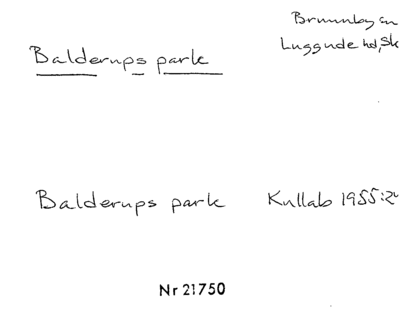 Brunnby sn
Luggude hd, Sk
Balderups park
Balderups park Kullab 1955:2
Nr 21750